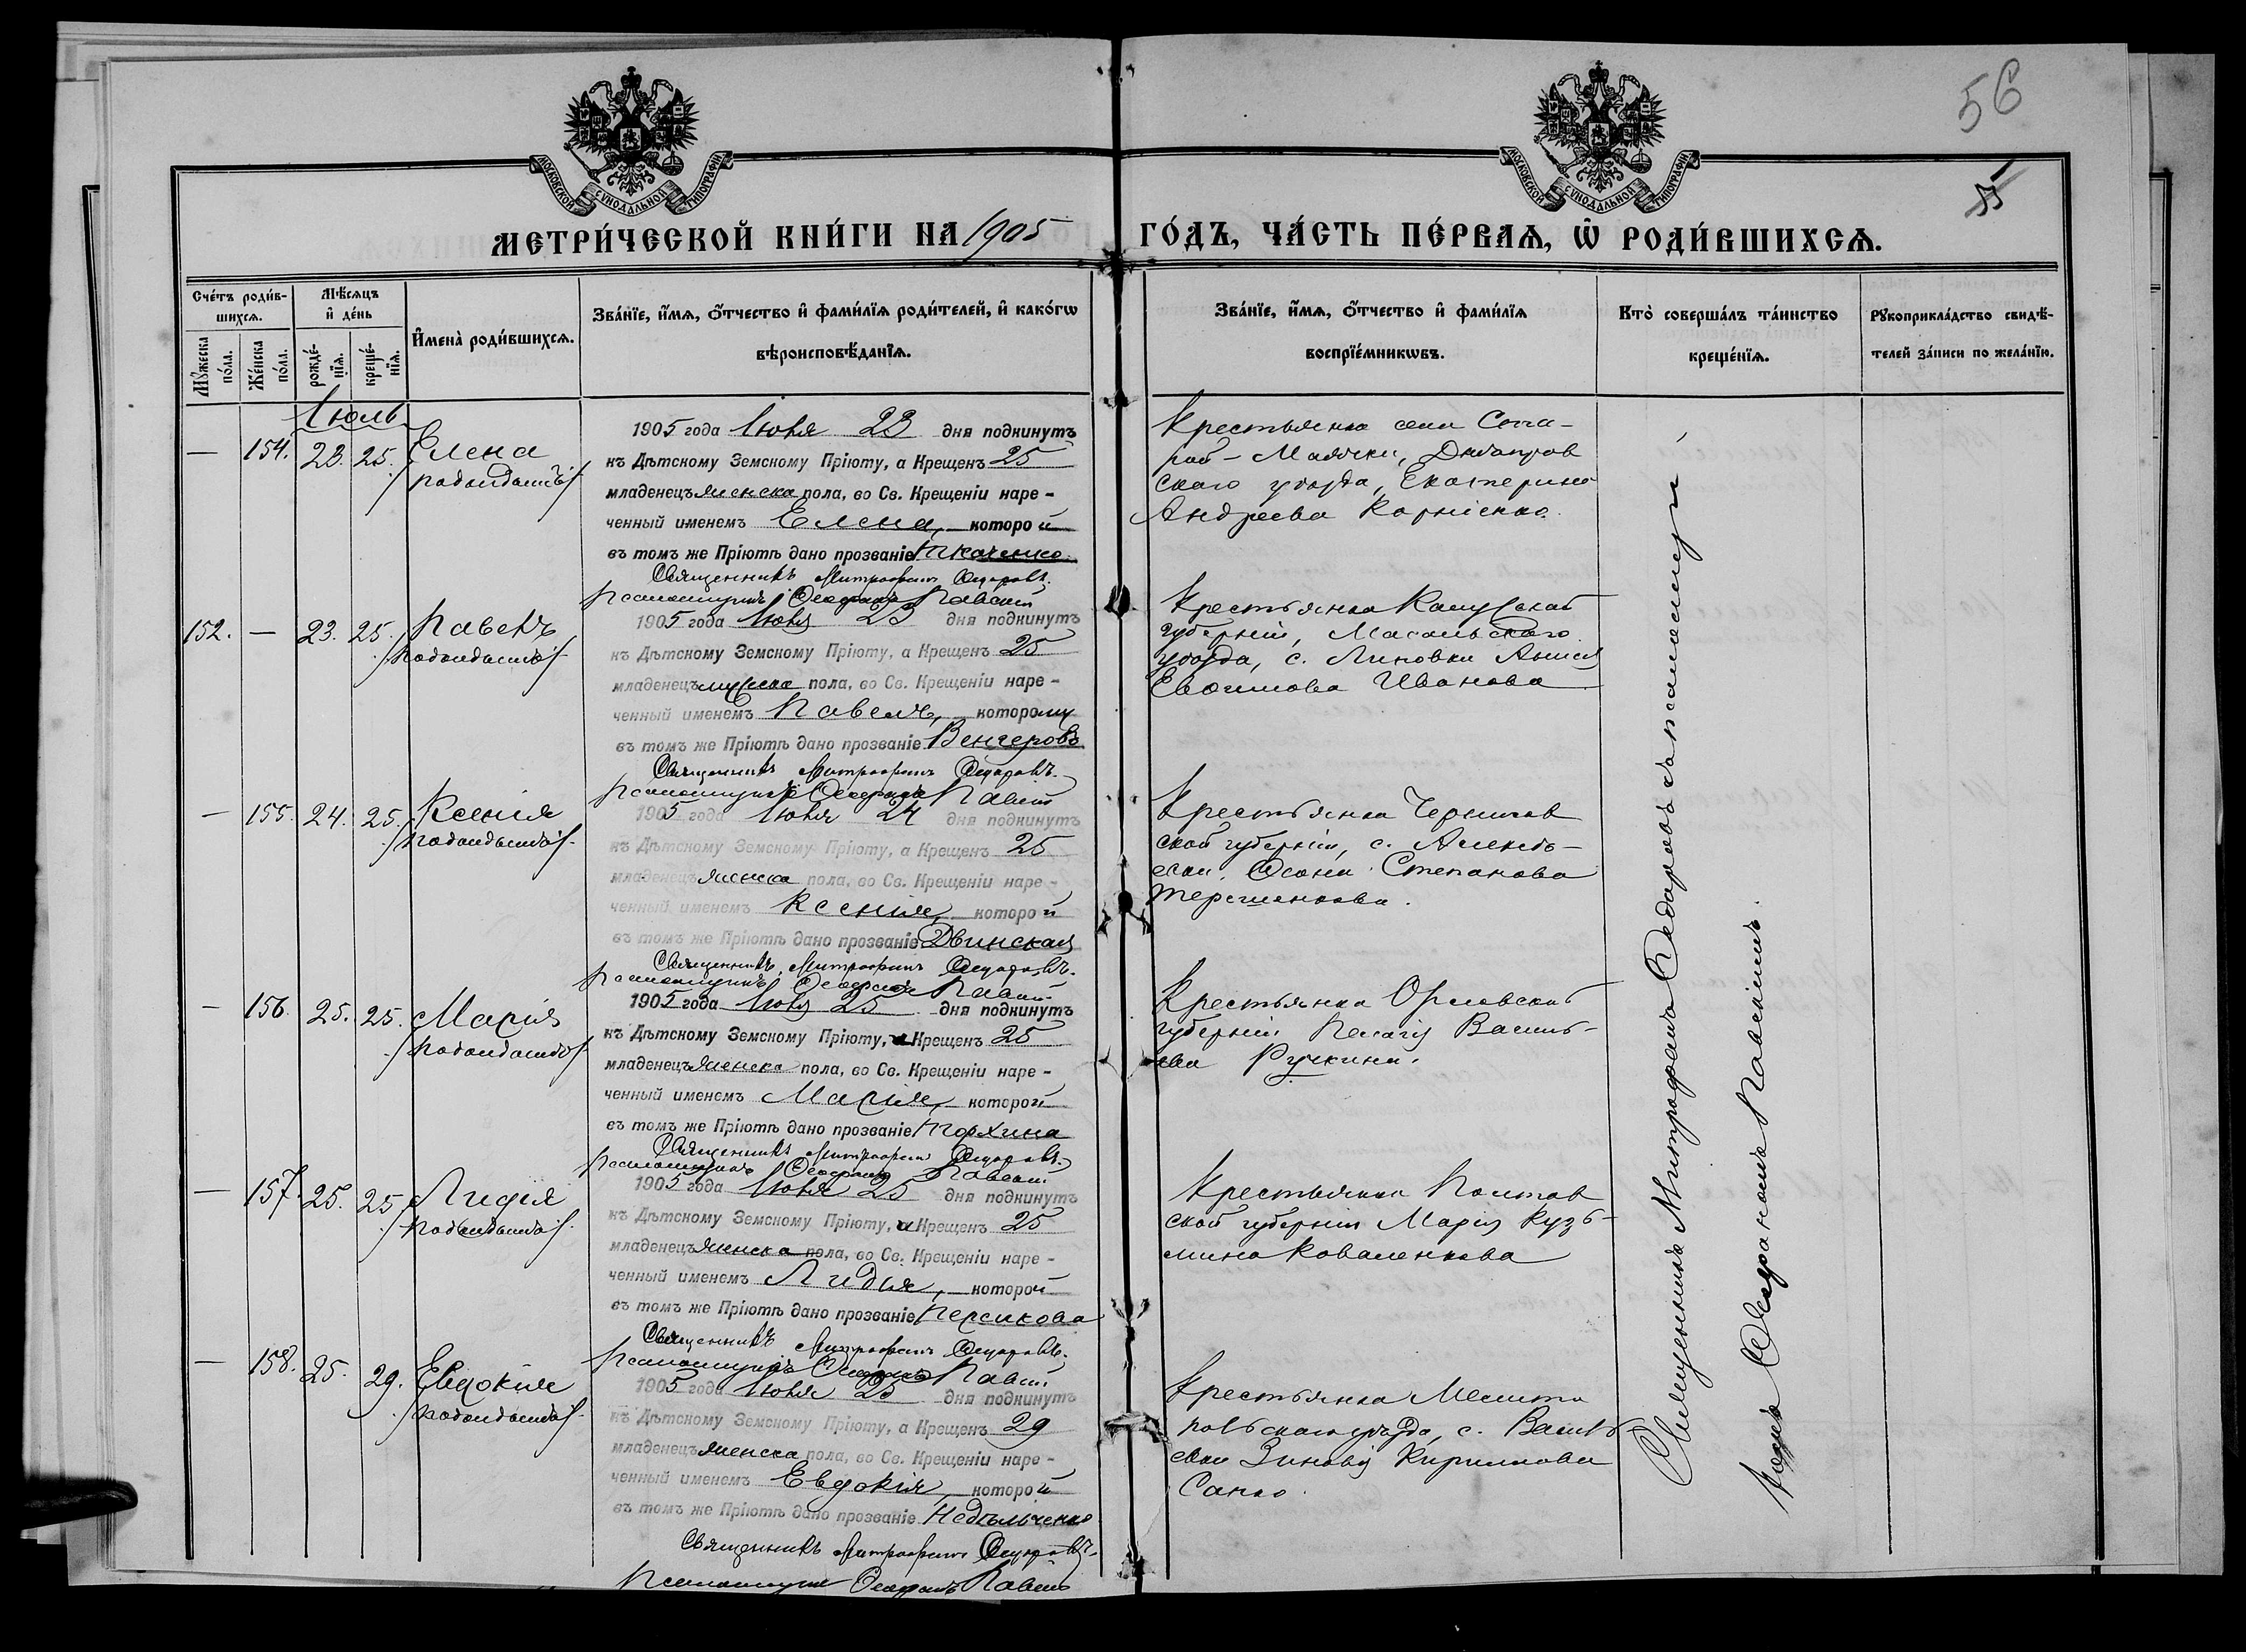 56
55
МОСКОВСКОЙ СУНОДАЛЬНОЙ ТИПОГРАФІИ
МОСКОВСКОЙ СУНОДАЛЬНОЙ ТИПОГРАФІИ
МЕТРИ́ЧЕСКОЙ КНИ́ГИ НА 1905 ГО́ДЪ, ЧА́СТЬ ПЕ́РВАѦ, Ѡ҆ РОДИ́ВШИХСѦ.
Сче́тъ роди́в-
шихсѧ.
Мꙋ́жеска по́ла.
Же́нска по́ла.
Мѣ́сѧцъ
и҆ де́нь
рожде́-нїѧ.
креще́-нїѧ.
И҆мена̀ роди́вшихсѧ.
Зва́нїе, и҆́мѧ, ѻ҆́тчество и҆ фами́лїѧ роди́телей, и҆ како́гѡ
вѣроисповѣ́данїѧ.
Зва́нїе, и҆́мѧ, ѻ҆́тчество и҆ фами́лїѧ
воспрїе́мникѡвъ.
Кто̀ соверша́лъ та́инство
креще́нїѧ.
Рꙋкоприкла́дство свидѣ́-
телей за́писи по жела́нїю.
Іюль
— 154. 23. 25. Елена
1905 года Іюля 23 дня подкинутъ
къ Дѣтскому Земскому Пріюту, а Крещенъ 25
младенецъ женска пола, во Св. Крещеніи наре-
ченный именемъ Елена, которой
въ томъ же Пріютѣ дано прозваніе Ткаченко.
Священникъ Митрофанъ Ѳедоровъ.
Псаломщикъ Ѳеофанъ Павскій
Крестьянка села Ста-
рой-Маячки, Днѣпров
скаго уѣзда, Екатерина
Андреева Корніенко.
152. — 23. 25. Павелъ
1905 года Іюля 23 дня подкинутъ
къ Дѣтскому Земскому Пріюту, а Крещенъ 25
младенецъ мужеска пола, во Св. Крещеніи наре-
ченный именемъ Павелъ, которому
въ томъ же Пріютѣ дано прозваніе Венгеровъ
Священникъ Митрофанъ Ѳедоровъ.
Псаломщикъ Ѳеофанъ Павскій
Крестьянка Калужской
губерніи, Масальскаго
уѣзда, с. Линовки
Евѳимова Иванова
— 155. 24. 25. Ксенія
1905 года Іюля 24 дня подкинутъ
къ Дѣтскому Земскому Пріюту, а Крещенъ 25
младенецъ женска пола, во Св. Крещеніи наре-
ченный именемъ Ксенія, которой
въ томъ же Пріютѣ дано прозваніе Двинская
Священникъ Митрофанъ Ѳедоровъ.
Псаломщикъ Ѳеофанъ Павскій
Крестьянка Чернигов
ской губерніи, с.
Степанова
Терешенкова.
— 156. 25. 25. Марія
1905 года Іюля 25 дня подкинутъ
къ Дѣтскому Земскому Пріюту, а Крещенъ 25
младенецъ женска пола, во Св. Крещеніи наре-
ченный именемъ Марія, которой
въ томъ же Пріютѣ дано прозваніе Торхина
Священникъ Митрофанъ Ѳедоровъ.
Псаломщикъ Ѳеофанъ Павскій
Крестьянка Орловской
губерніи Пелагія Василь-
ева Ручкина.
— 157. 25. 25. Лидія
1905 года Іюля 25 дня подкинутъ
къ Дѣтскому Земскому Пріюту, а Крещенъ 25
младенецъ женска пола, во Св. Крещеніи наре-
ченный именемъ Лидія, которой
въ томъ же Пріютѣ дано прозваніе Персикова
Священникъ Митрофанъ Ѳедоровъ.
Псаломщикъ Ѳеофанъ Павскій
Крестьянка Полтав
ской губерніи Марія Кузь-
мина Коваленкова
— 158. 25. 29. Евдокія
1905 года Іюля 25 дня подкинутъ
къ Дѣтскому Земскому Пріюту, а Крещенъ 29
младенецъ женска пола, во Св. Крещеніи наре-
ченный именемъ Евдокія, которой
въ томъ же Пріютѣ дано прозваніе Недѣльченко
Священникъ Митрофанъ Ѳедоровъ.
Псаломщикъ Ѳеофанъ Павскій
Крестьянка Мелито
польскаго уѣзда, с. Василь
евки Зиновія Кириллова
Санко.
Священникъ Митрофанъ Ѳедоровъ съ псаломщи-
комъ Ѳеофаномъ Павскимъ.